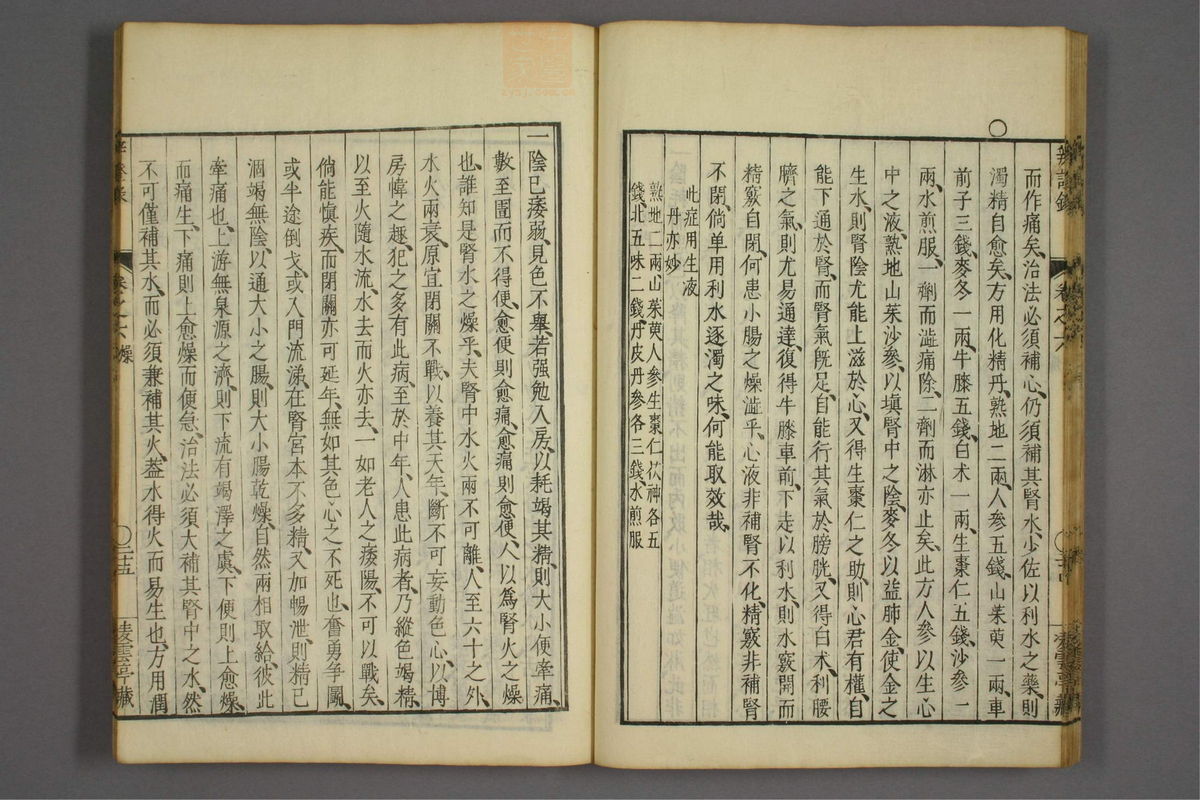 辨證錄 卷之六
而作痛矣、治法必須補心、仍須補其腎水、少佐以利水之藥、則
濁精自愈矣、方用化精丹、熟地二兩、人參五錢、山茱萸一兩、車
前子三錢、麥冬一兩、牛膝五錢、白术一兩、生棗仁五錢、沙參一
兩、水煎服、一劑而澁痛除、二劑而淋亦止矣、此方人參以生心
中之液、熟地山茱沙參、以塡腎中之陰、麥冬以益肺金、使金之
生水、則腎陰尤能上滋於心、又得生棗仁之助、則心君有權、自
能下通於腎、而腎氣既足、自能行其氣於膀胱、又得白术、利腰
臍之氣、則尤易通達、復得牛膝車前、下走以利水、則水竅開而
精竅自閉、何患小腸之燥澁乎、心液非補腎不化、精竅非補腎
不閉、倘单用利水逐濁之味、何能取效哉、
此症用生液
丹亦妙
熟地二兩、山茱萸人參生棗仁茯神各五
錢北五味二錢丹皮丹參各三錢、水煎服
一陰已痿弱、見色不舉、若强勉入房、以耗竭其精、則大小便牽痛、
數至圊而不得便、愈便則愈痛、愈痛則愈便、人以爲腎火之燥
也、誰知是腎水之燥乎、夫腎中水火兩不可離、人至六十之外、
水火兩衰、原宜閉關不戰、以養其天年、斷不可妄動色心、以博
房幃之趣、犯之多有此病、至於中年、人患此病者、乃縱色竭精、
以至火隨水流、水去而火亦去、一如老人之痿陽、不可以戰矣、
倘能愼疾、而閉關亦可延年、無如其色心之不死也、奮勇爭鬭、
或半途倒戈、或入門流涕、在腎宮本不多精、又加暢泄、則精已
涸竭、無陰、以通大小之腸、則大小腸乾燥、自然兩相取給、彼此
牽痛也、上游無泉源之濟、則下流有竭澤之虞、下便則上愈燥、
而痛生、下痛則上愈燥而便急、治法必須大補其腎中之水、然
不可僅補其水、而必須兼補其火、蓋水得火而易生也、方用潤
卷之六 燥
二十五
凌雲亭藏